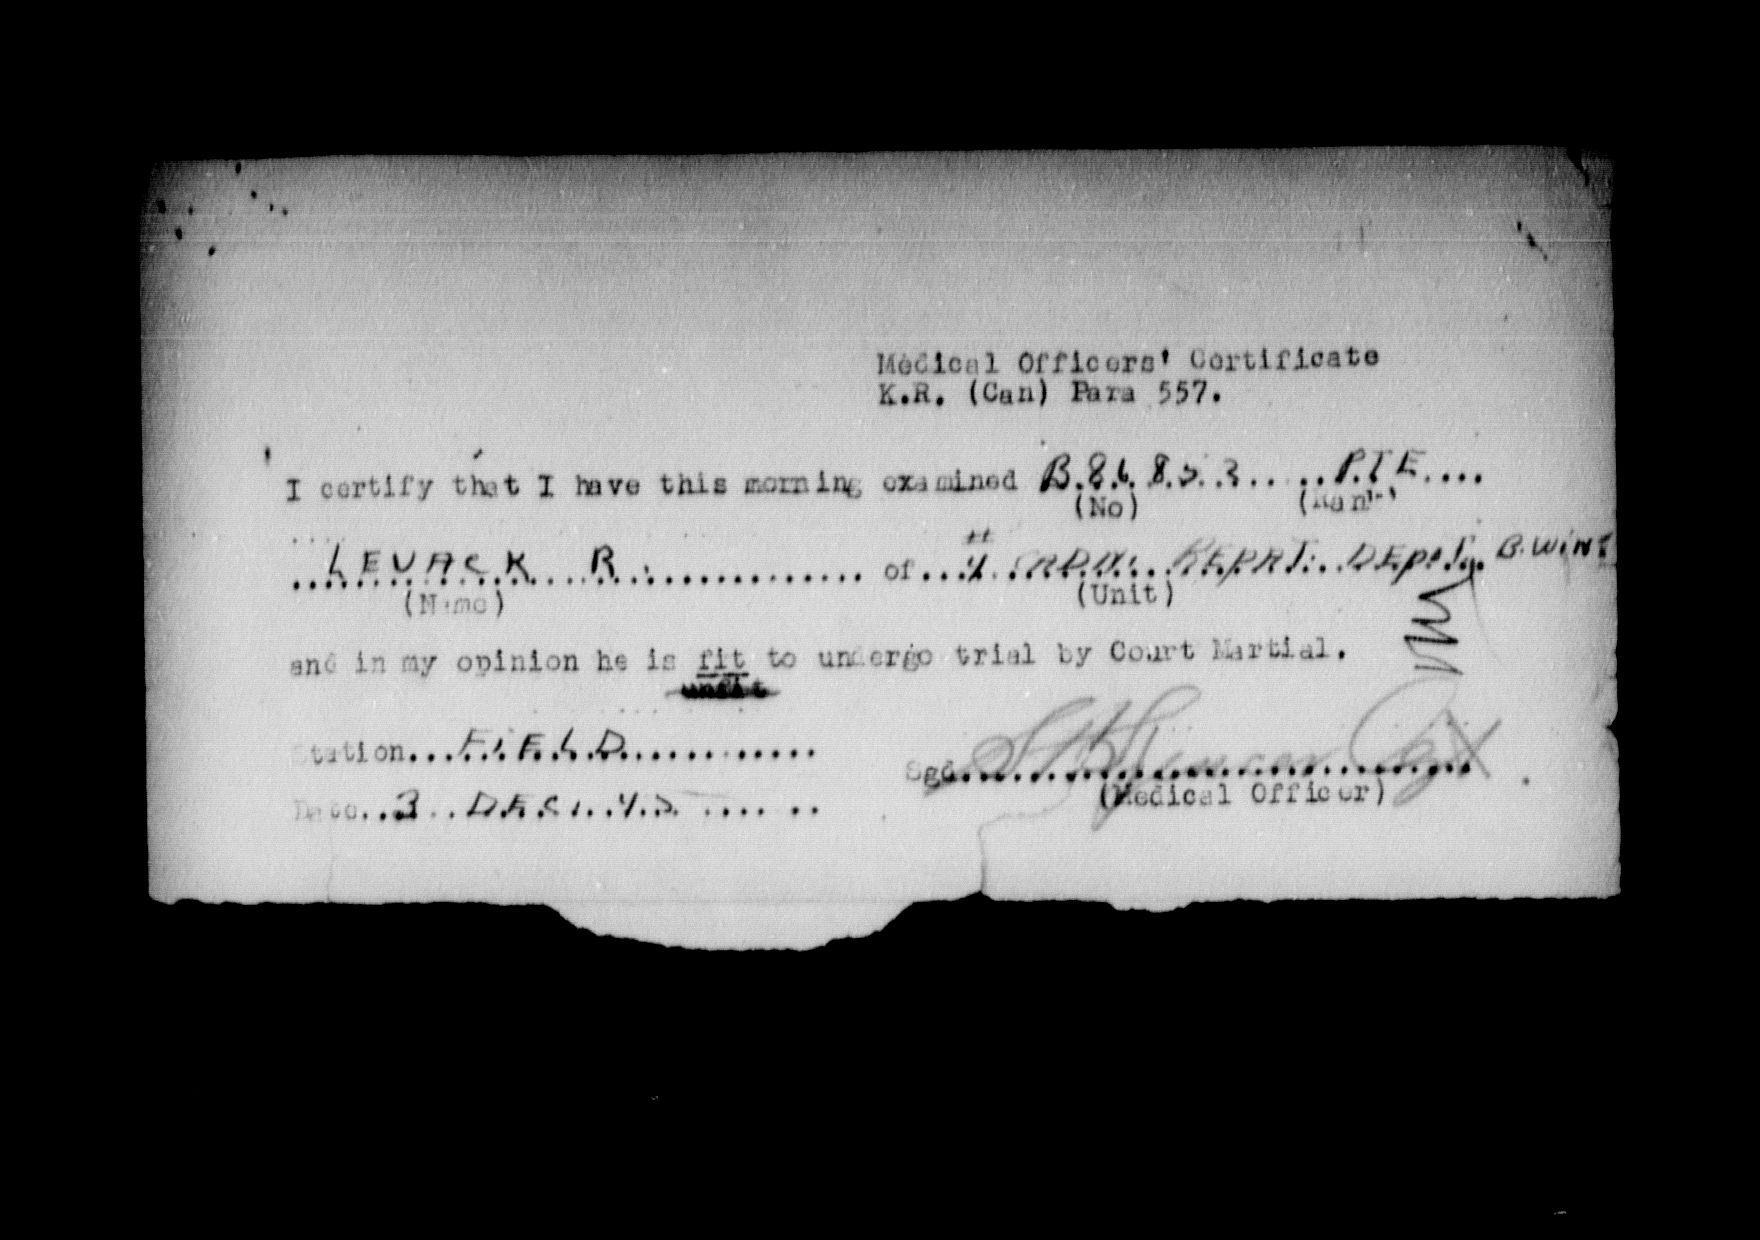 Medical Officers' Certificate
K.R. (Can) Para 557.
I certify that I have this morning examined B.86853......PTE....
(No) (Rank)
....LEVACK R.............. of...#4 CADN. REPAT. DEPOT. B.WING
(Name) (Unit)
and in my opinion he is fit to undergo trial by Court Martial.
unfit
Station...FIELD............
Sgd..............................
Date..3..DEC...45......
(Medical Officer)